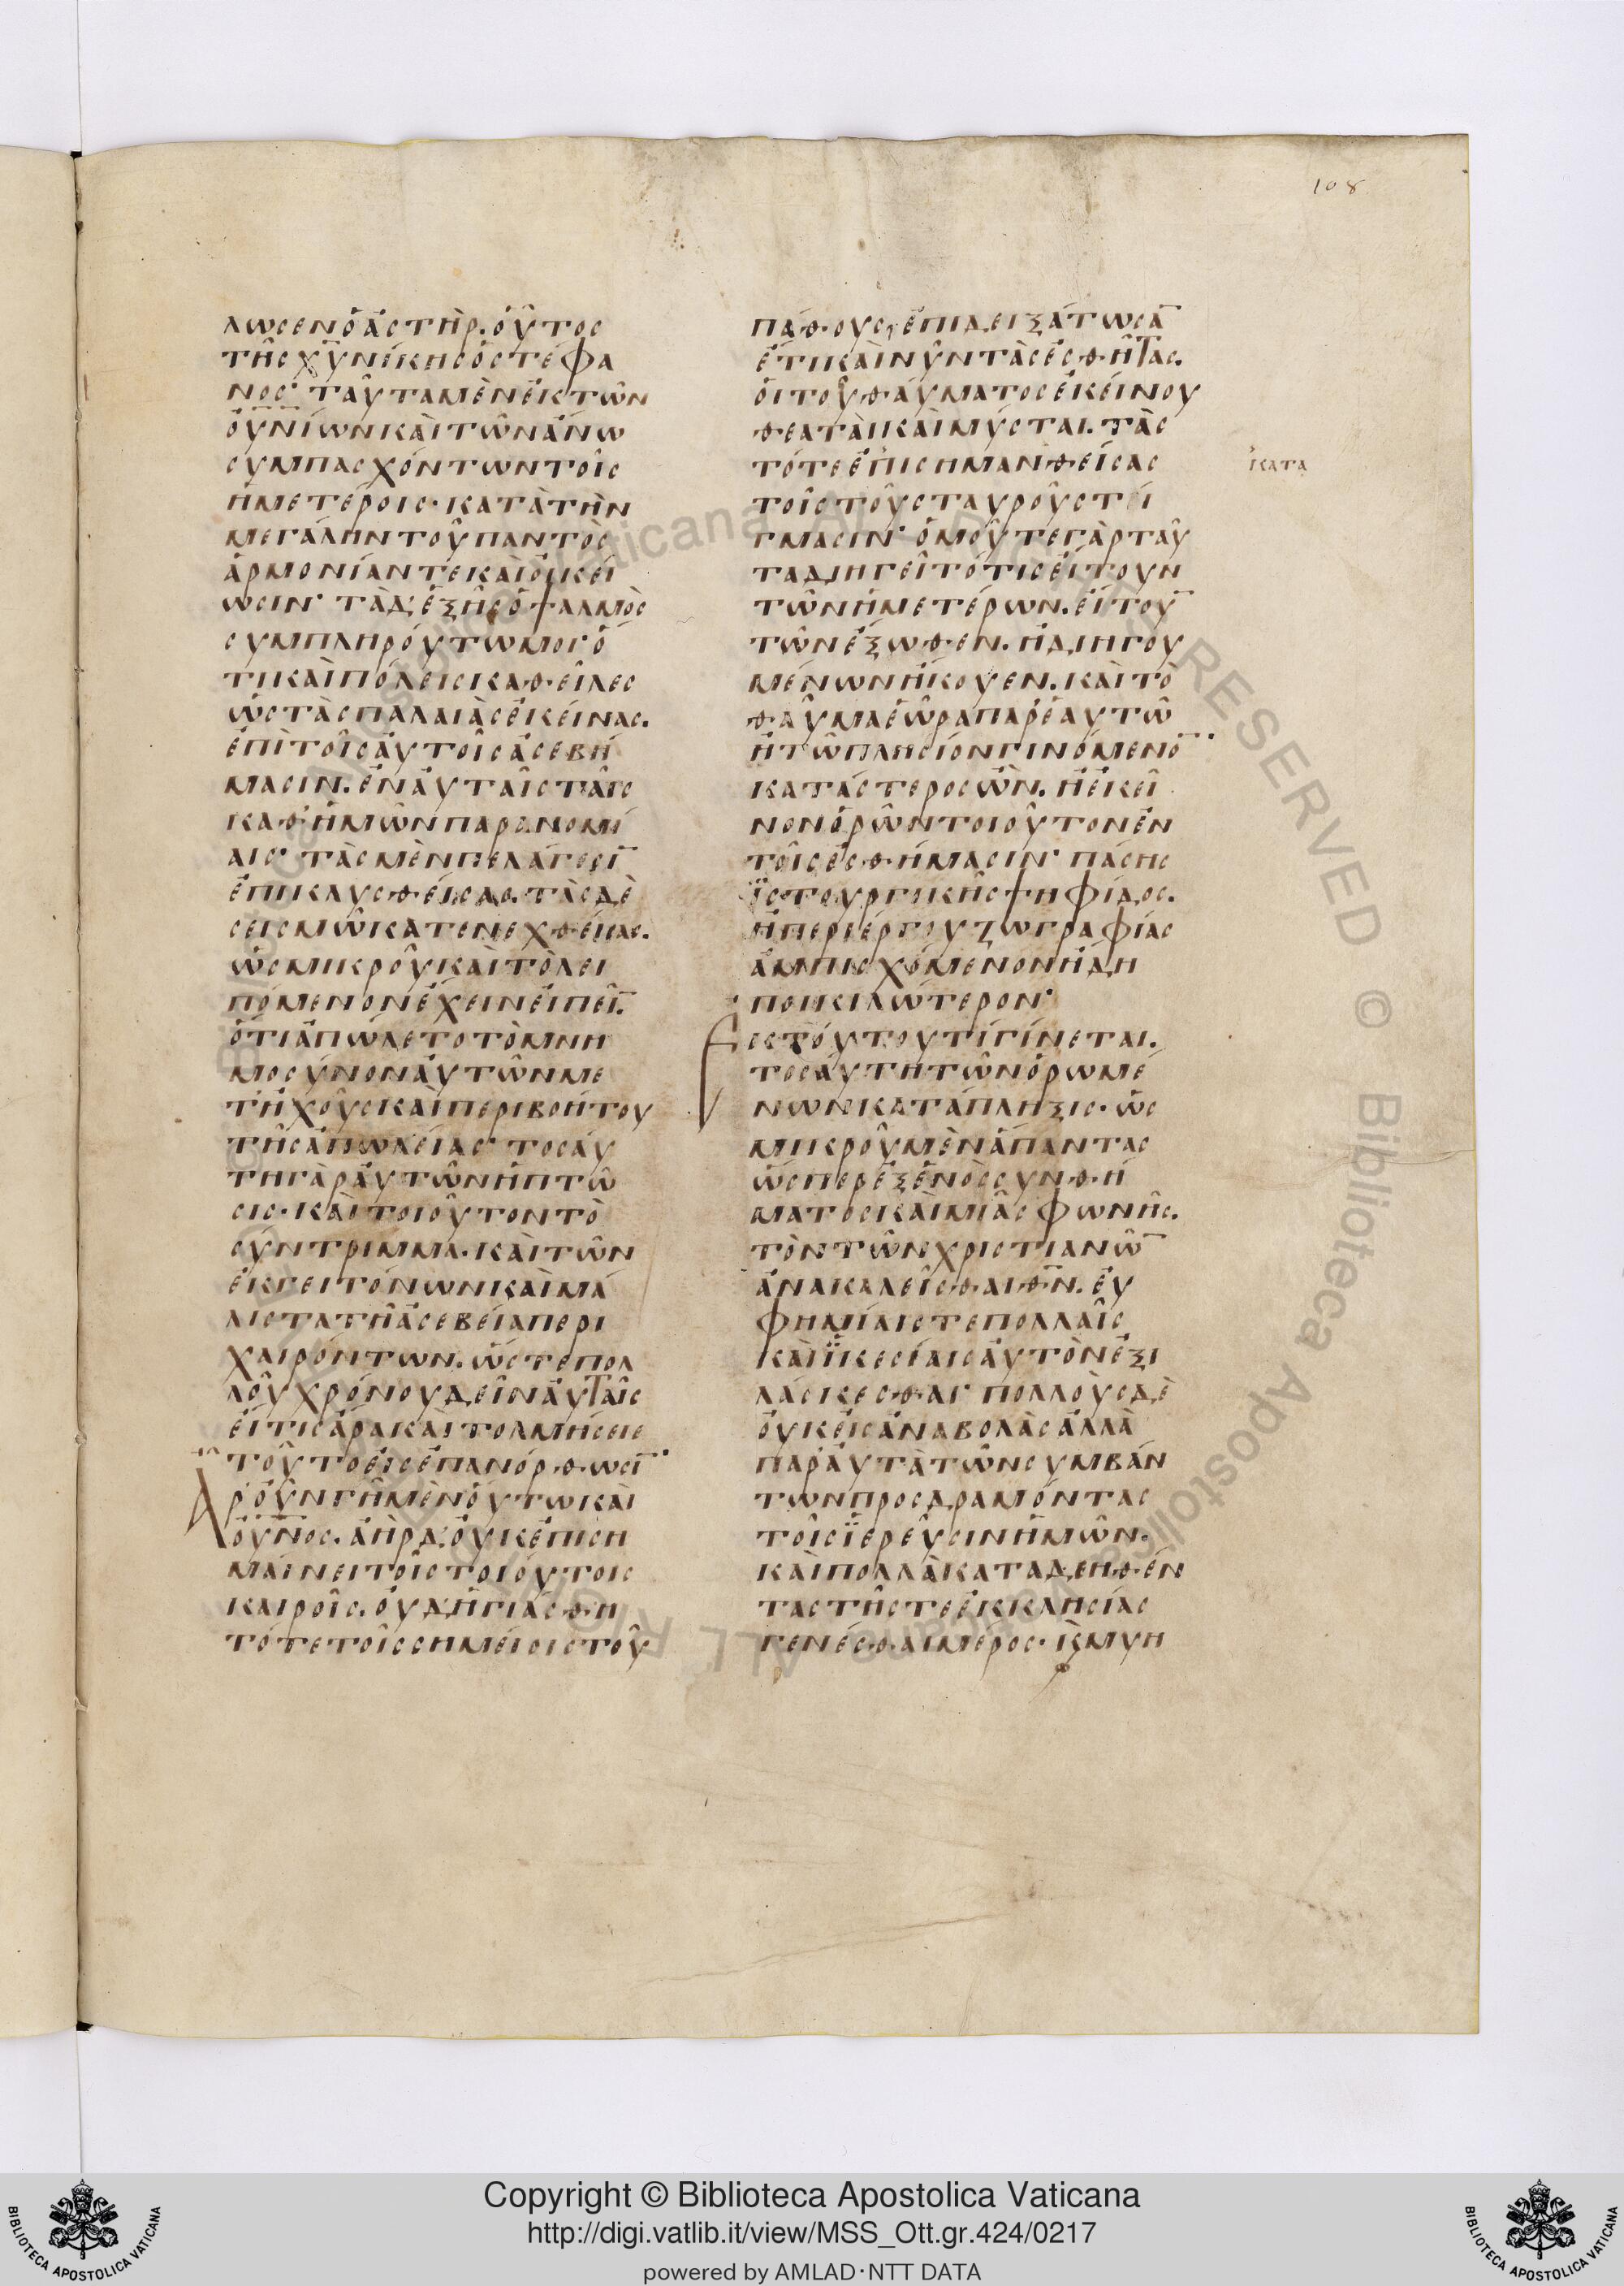 108
λωσεν ὁ ἀστήρ. οὗτος
τῆς χ̅υ̅ νίκης ὁ στέφα
νος· ταῦτα μὲν ἐκ τῶν
ο̅υ̅ν̅ίων καὶ τῶν ἄνω
συμπασχόντων τοῖς
ἡμετέροις· κατὰ τὴν
μεγάλην τοῦ παντὸς
ἁρμονίαν τε καὶ οἰκεί
ωσιν· τὰ δ' ἑξῆς ὁ ψαλμὸς
συμπληρούτω μοι· ὅ
τι καὶ πόλεις καθεῖλες
ὡς τὰς παλαιὰς ἐκείνας.
ἐπὶ τοῖς αὐτοῖς ἀσεβή
μασιν. ἐν αὐταῖς ταῖς
καθ' ἡμῶν παρανομί
αις· τὰς μὲν πελάγεσῑ
ἐπικλυσθείσας. τὰς δὲ
σεισμῶ κατενεχθείσας.
ὡς μικροῦ καὶ τὸ λει
πόμενον ἔχειν εἰπεῖ̅.
ὅτι ἀπώλετο τὸ μνη
μόσυνον αὐτῶν με
τ' ἤχους καὶ περιβοήτου
τῆς ἀπωλείας· τοσαύ
τη γὰρ αὐτῶν ἡ πτῶ
σις· καὶ τοιοῦτον τὸ
σύντριμμα· καὶ τῶν
ἐκ γειτόνων καὶ μά
λιστα τῆ ἀσεβεία περι
χαιρόντων. ὥστε πολ
λοῦ χρόνου δεῖν αὐταῖς
εἴ τις ἄρα καὶ τολμήσειε
τοῦτο εἰς ἐπανόρθωσῑ·
Ἀρ' οὖν γῆ μὲν οὕτω καὶ
ο̅υ̅ν̅ος. ἀὴρ δ' οὐκ ἐπιση
μαίνει τοῖς τοιούτοις
καιροῖς. οὐδ' ἡγιάσθη
τότε τοῖς σημείοις τοῦ
πάθους, ἐπιδειξάτωσᾱ
ἔτι καὶ νῦν τὰς ἐσθῆτας.
οἱ τοῦ θαύματος ἐκείνου
θεαταὶ καὶ μύσται. τὰς
τότε ἐπισημανθείσας
κατα
τοῖς τοῦ σταυροῦ στί
γμασιν· ὁμοῦ τε γὰρ ταῦ
τα διηγεῖτό τις εἴτ' οὖν
τῶν ἡμετέρων. εἴτ' οὖ̅
τῶν ἔξωθεν. ἢ διηγου
μένων ἤκουεν. καὶ τὸ
θαῦμα ἑώρα παρ' ἑαυτῶ
ἢ τῶ πλησίον γινόμενο̅··
κατάστερος ὤν. ἢ ἐκεῖ
νον ὁρῶν τοιοῦτον ἐν
τοῖς ἐσθήμασιν· πάσης
ἱστουργικῆς ψηφίδος.
ἢ περιέργου ζωγραφίας
ἀμπισχόμενον ἤδη
ποικιλώτερον·
Ἐς τούτου τί γίνεται.
τοσαύτη τῶν ὁρωμέ
νων κατάπληξις· ὡς
μικροῦ μὲν ἅπαντας
ὥσπερ ἐξ ἑνὸς συνθή
ματος καὶ μιᾶς φωνῆς.
τὸν τῶν χριστιανῶ̅
ἀνακαλεῖσθαι θ̅ν̅. εὐ
φημίαις τε πολλαῖς
καὶ ἱκεσίαις αὐτὸν ἐξι
λάσκεσθαι· πολλοὺς δὲ
οὐκ εἰς ἀναβολὰς ἀλλὰ
παρ' αὐτὰ τῶν συμβάν
των προσδραμόντας
τοῖς ἱερεῦσιν ἡμῶν.
καὶ πολλὰ καταδεηθέν
τας τῆς τε ἐκκλησίας
γενέσθαι μέρος· κ̀ μυη
Copyright © Biblioteca Apostolica Vaticana
http://digi.vatlib.it/view/MSS_Ott.gr.424/0217
powered by AMLAD·NTT DATA
BIBLIOTECA APOSTOLICA VATICANA
BIBLIOTECA APOSTOLICA VATICANA